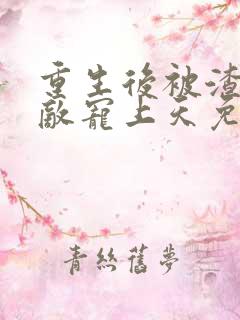 重生後被渣
敵寵上天免
青絲舊夢